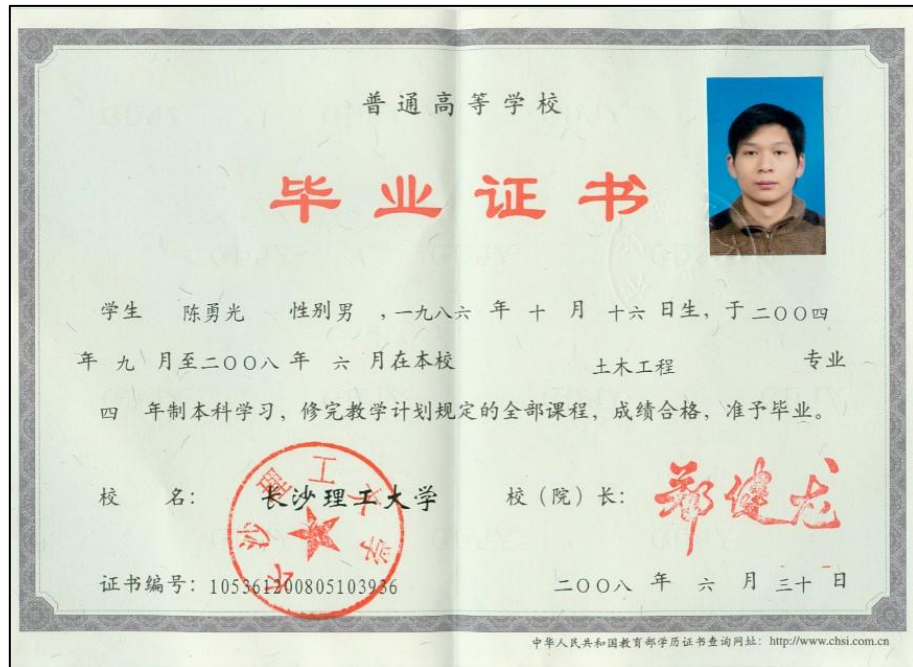 普通高等学校
毕业证书
学生 陈勇光 性别男 ,一九八六 年 十 月 十六 日生, 于 二〇〇四
年 九 月至二〇〇八 年 六 月在本校 土木工程 专业
四 年制本科学习, 修完教学计划规定的全部课程, 成绩合格, 准予毕业。
校 名: 长沙理工大学 校(院)长: 郑健龙
长沙理工大学
证书编号: 105361200805103936 二〇〇八 年 六 月 三十 日
中华人民共和国教育部学历证书查询网址: http://www.chsi.com.cn